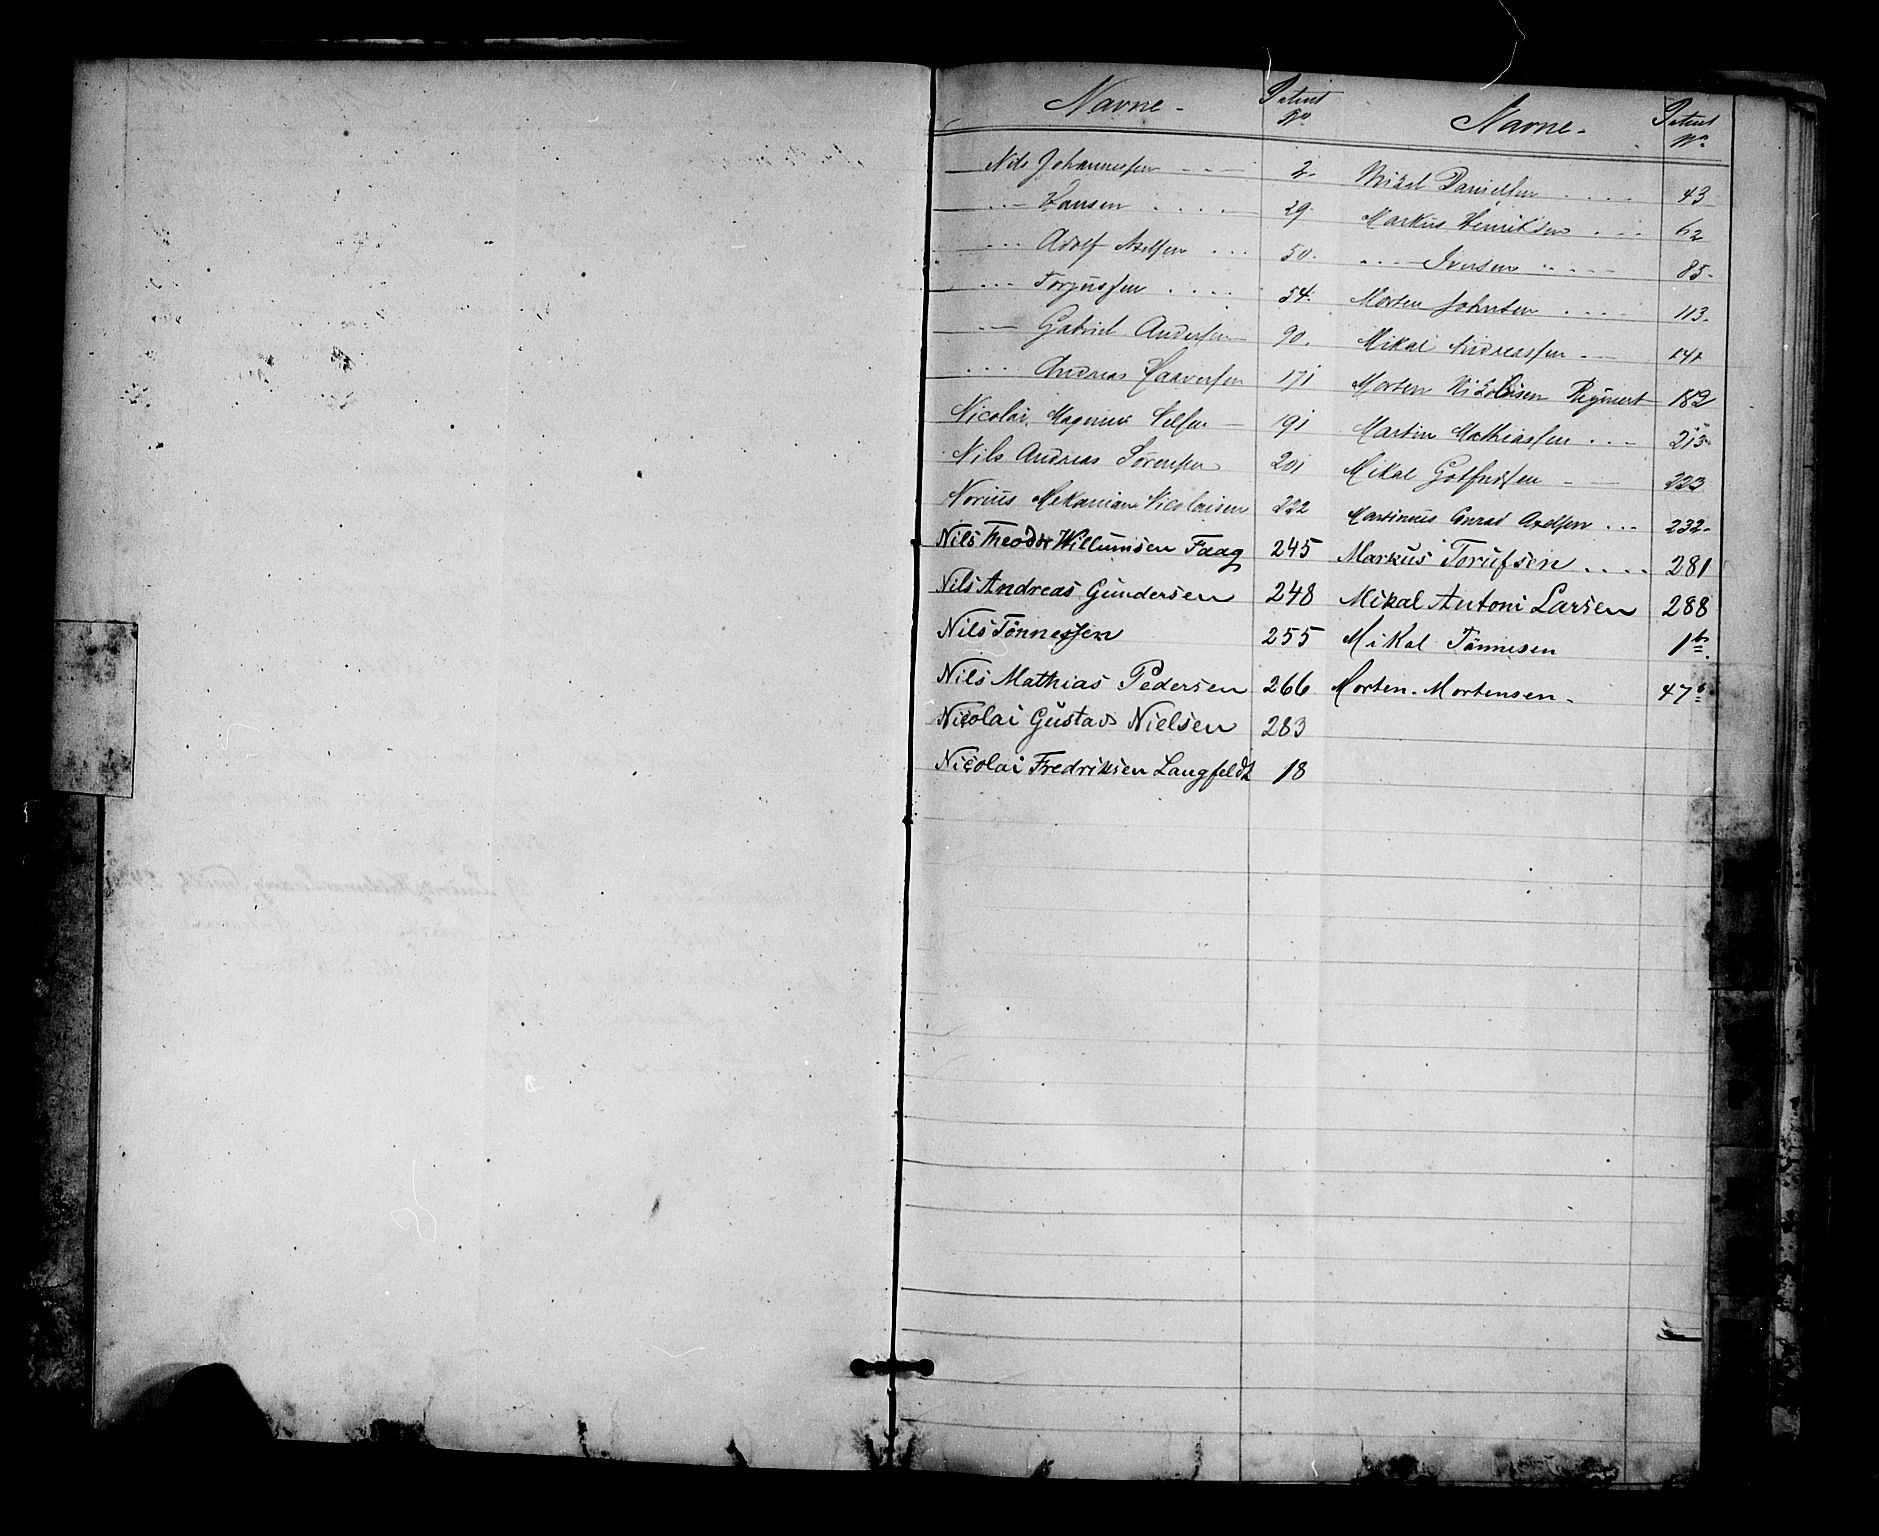 Navne - Patent No
Nils Johannessen - - - 2.
- - - Hansen . . . . 29.
. . . Adolf Axelsen . . . 50.
. . . Torjussen . . . . 54.
. - - Gabriel Andersen 90.
. . . Andreas Haaversen 171
Nicolai Magnus 191
Nils Andreas Sørensen 201
Norius Nicolaisen 222
Nils Theodor Willumsen Faag 245
Nils Andreas Gundersen 248
Nils Tönnessen 255
Nils Mathias Pedersen 266
Nicolai Gustav Nielsen 283
Nicolai Fredriksen Langfeldt 18
Navne - Patent No
Mikal Danielsen . . . . . 43
Markus Henriksen . . . 62
. . . . Iversen . . . . . 85.
Morten Johnsen . . . . 113.
Mikal Andreassen . - - 141
Morten Nikolaisen Reiment 182
Martin Mathiassen . . . 213
Mikal Gotfredsen - - 223
Martinius Conrad Axelsen . . . 232.
Markus Torufsen . . . . 281
Mikal Antoni Larsen 288
Mikal Tönnesen 1b.
Morten. Mortensen. 47b